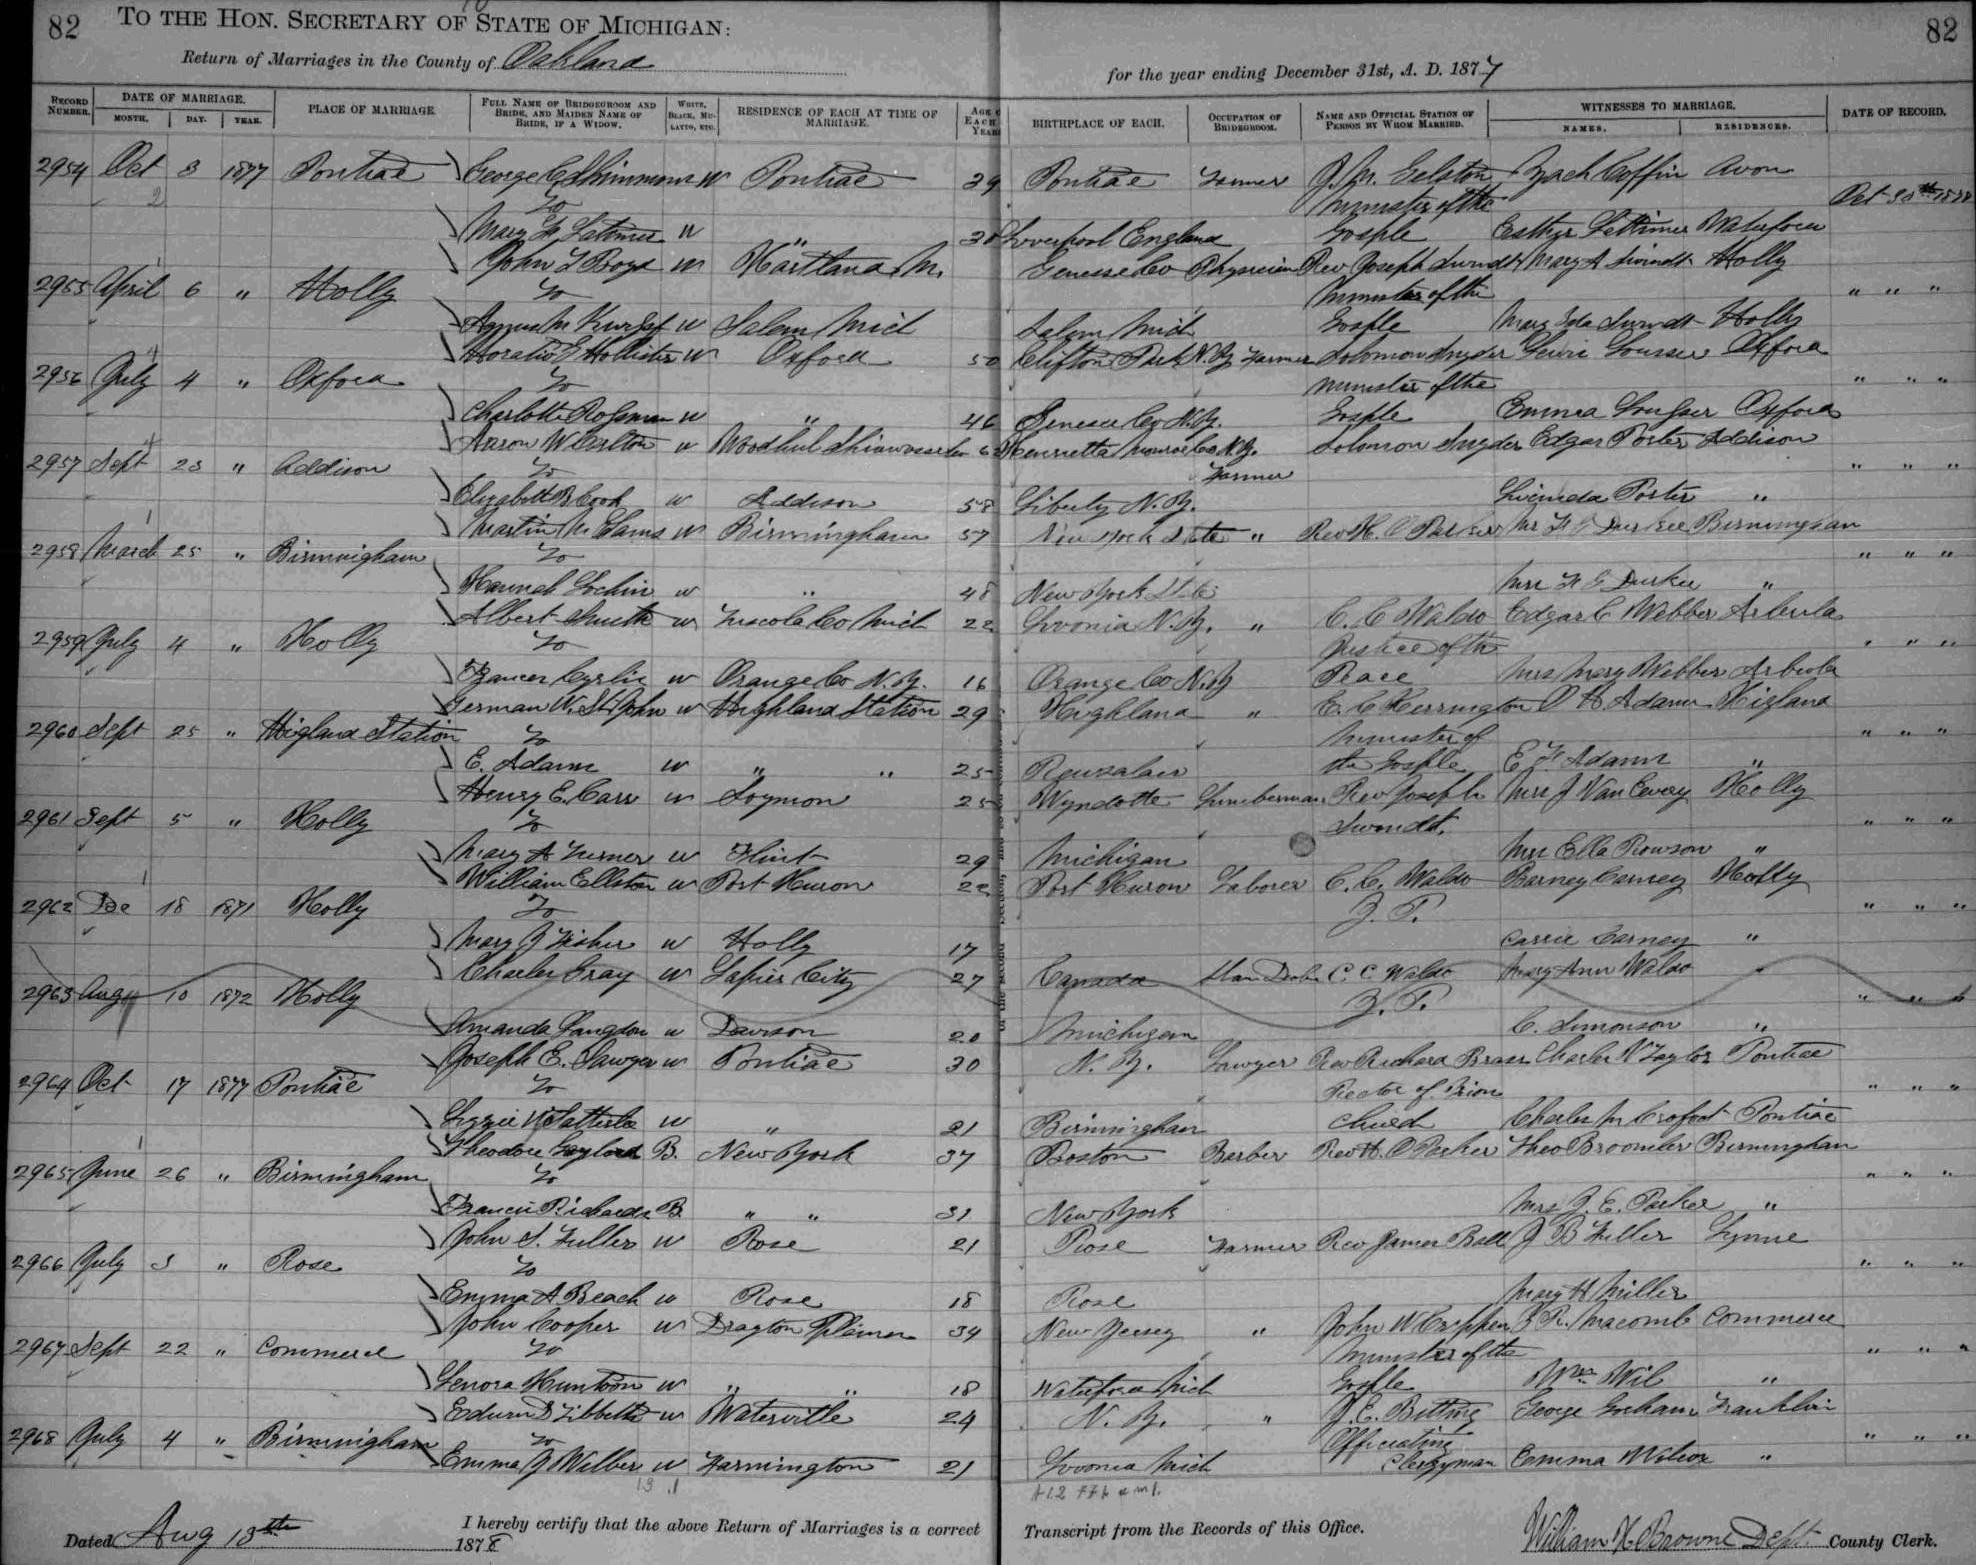 82 TO THE HON. SECRETARY OF STATE OF MICHIGAN: 82
Return of Marriages in the County of Oakland for the year ending December 31st, A. D. 1877
RECORD NUMBER. DATE OF MARRIAGE. MONTH. DAY. YEAR. PLACE OF MARRIAGE. FULL NAME OF BRIDEGROOM AND BRIDE, AND MAIDEN NAME OF BRIDE, IF A WIDOW. WHITE, BLACK, MULATTO, ETC. RESIDENCE OF EACH AT TIME OF MARRIAGE. AGE OF EACH YEARS BIRTHPLACE OF EACH. OCCUPATION OF BRIDEGROOM. NAME AND OFFICIAL STATION OF PERSON BY WHOM MARRIED. WITNESSES TO MARRIAGE. NAMES. RESIDENCES. DATE OF RECORD.
2954 Oct 3 1877 Pontiac George C. Shimmons W Pontiac 39 Pontiac Farmer J. M. Gelston Zach Coffin Avon
to Minister of the Oct 30th
Mary F. Latimer W " 30 Liverpool England Gosple Esther Lattimer Waterford
John L Boyd W Hartland M. Genesse Co Physician Rev Joseph Swindt Mary A Swindt Holly
2955 April 6 " Holly to Minister of the " " "
Agnes M W Salem Mich Salem Mich Gosple Mary Ida Swindt Holly
Horatio G Hollister W Oxford 50 Clifton Park N.Y. Farmer Solomon Snyder Oxford
2956 July 4 " Oxford to Minister of the " " "
Charlotte Rossman W " 46 Genesee Co N.Y. Gosple Emma Oxford
Anson W Carlton W Woodhul Shiawassee Co 62 Henrietta Monroe Co N.Y. Solomon Snyder Edgar Porter Addison
2957 Sept 23 " Addison to Farmer " " "
Elizabeth B Cook W Addison 58 Liberty N.Y. Lucinda Porter "
Martin W Birmingham 57 New York State " Rev H. O Parker Mr F G Durkee Birmingham
2958 March 25 " Birmingham to " " "
Hannah W " 48 New York State Mrs F G Durkee "
Albert Smith W Tuscola Co Mich 22 Livonia N.Y. " C. C Waldo Edgar C Webber Arbela
2959 July 4 " Holly to Justice of the " " "
Frances W Orange Co N.Y. 16 Orange Co N.Y Peace Mrs Mary Webber Arbela
German W. St John W Highland Station 29 Highland " E. C Herrington O H. Adams Higland
2960 Sept 25 " Higland Station to Minister of " " "
E. Adams W " " 25 the Gosple E F Adams "
Henry E. Carr W 25 Wyndotte Lumberman Rev Joseph Mrs J Van Every Holly
2961 Sept 5 " Holly to Swindt. " " "
Mary A Turner W Flint 29 Michigan Mrs Ella Rowson "
William Ellston W Port Huron 22 Port Huron Laborer C. C. Waldo Barney Carney Holly
2962 De 18 1871 Holly to J. P. " " "
Mary J Fisher W Holly 17 Carrie Carney "
Charles Gray W Lapier City 27 Canada C. C. Waldo Mary Ann Waldo "
2963 Aug 10 1872 Holly J. P. " " "
Amanda Langdon W Davison 20 Michigan C. Simonson "
Joseph E. Sawyer W Pontiac 30 N.Y. Lawyer Rev Richard Brass Charles N Taylor Pontiac
2964 Oct 17 1877 Pontiac to Rector of Zion " " "
Lizzie W Satterlee W " 21 Birmingham Church Charles M Crofoot Pontiac
Theodore Gaylord B. New York 37 Boston Barber Rev H. O Parker Theo Broomler Birmingham
2965 June 26 " Birmingham to " " "
Francis Richards B " " 31 New York Mrs J. E. Parker "
John S. Fuller W Rose 21 Rose Farmer Rev James Ball J B Fuller Lynne
2966 July 3 " Rose to " " "
Emma A Beach W Rose 18 Rose Mary H Miller
John Cooper W Drayton Plains 34 New Jersey " John W Crippen Z R. Macomb Commerce
2967 Sept 22 " Commerce to Minister of the " " "
Lenora Huntoon W " " 18 Waterford Mich Gosple Wm Wil "
Edwin D Tibbetts W Waterville 24 N.Y. " J. E. Bitting George Graham Franklin
2968 July 4 " Birmingham to Officiating " " "
Emma J Wilber W Farmington 21 Livonia Mich Clergyman Emma Wilcox "
Dated Aug 13th 1878 I hereby certify that the above Return of Marriages is a correct Transcript from the Records of this Office. William H Browne Dept. County Clerk.